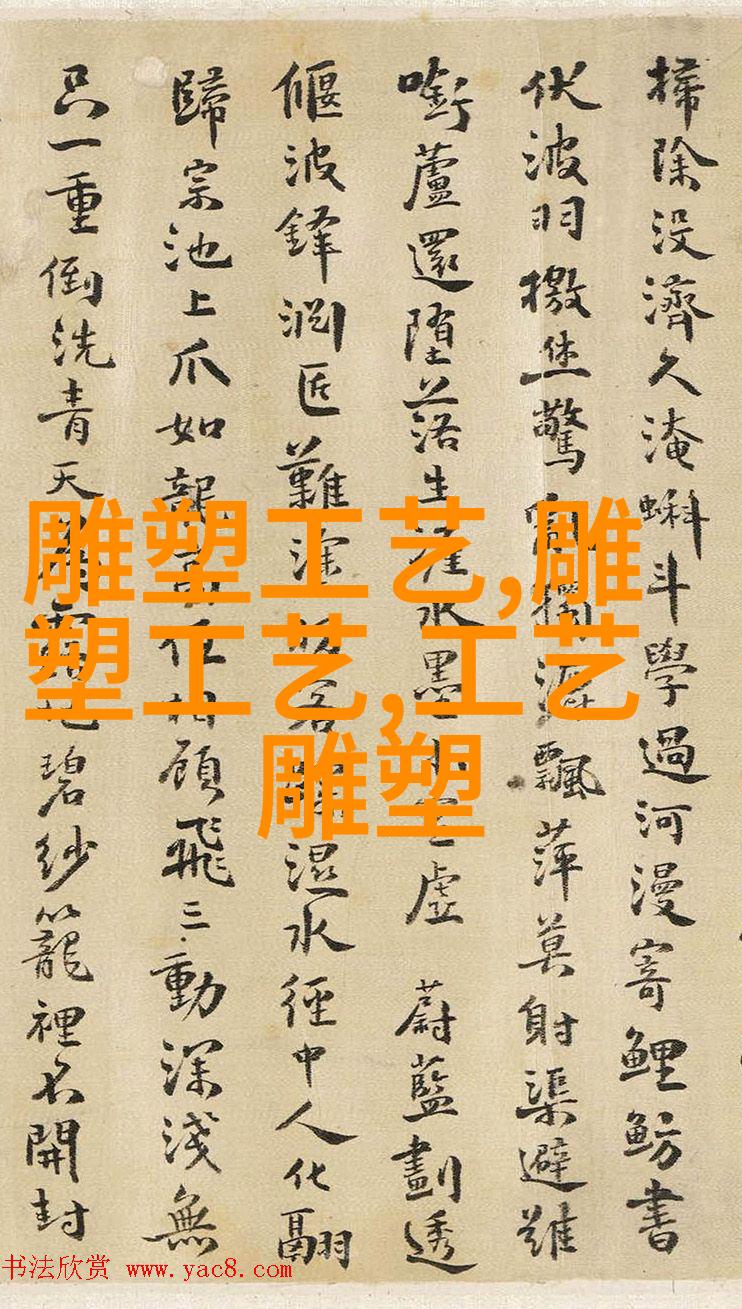 掃除没濟久淹蝌斗學過河漫寄鯉魴書
伏波羽檄焦驚飄萍莫射渠避難
銜蘆還墮落生水墨虛 蔚藍劃透
偃波鋒淵匠難塗濕水經中人化翮
歸宗池上爪如龍任相顧飛三動深淺無
只一重倒洗青天碧紗籠裡不開封
雕塑工艺,雕
塑工艺,工艺
雕塑
书法欣赏 www.yac8.com